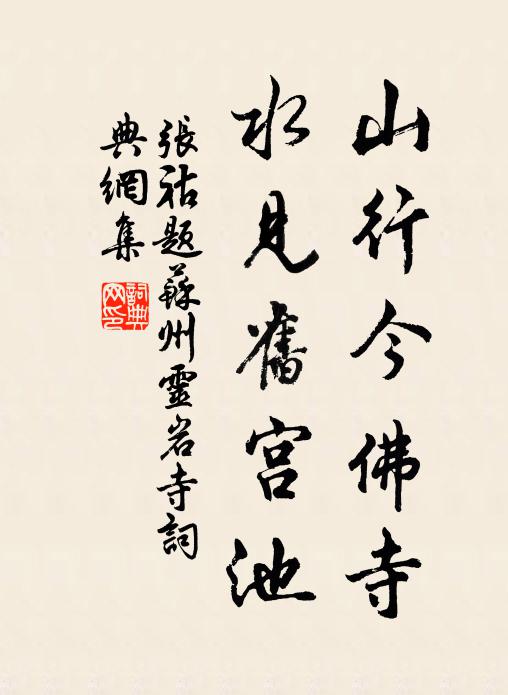 山行今佛寺
水見舊宮池
張祜題蘇州靈岩寺詞
典網集
詞典
网印